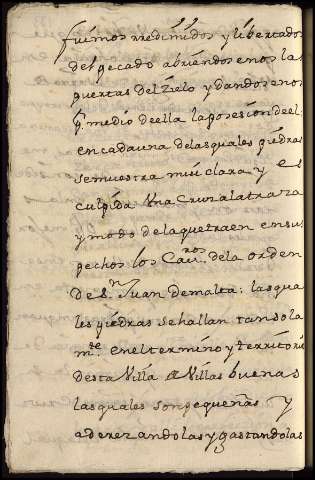 fuimos rredimidos y libertados
del pecado abriendosenos las
puertas del Zielo y dandosenos
pr medio de ella la posesion de el:
en cada una de las quales piedras
se muestra mui clara y es
culpida Una Cruz a la traza
y modo de la que traen en sus
pechos los Cavros. de la orden
de Sn. Juan de malta: las qua
les piedras se hallan tan sola
mte. en el termino y territorio
desta Villa de Villasbuenas
las quales son pequeñas y
aderezandolas y gastandolas